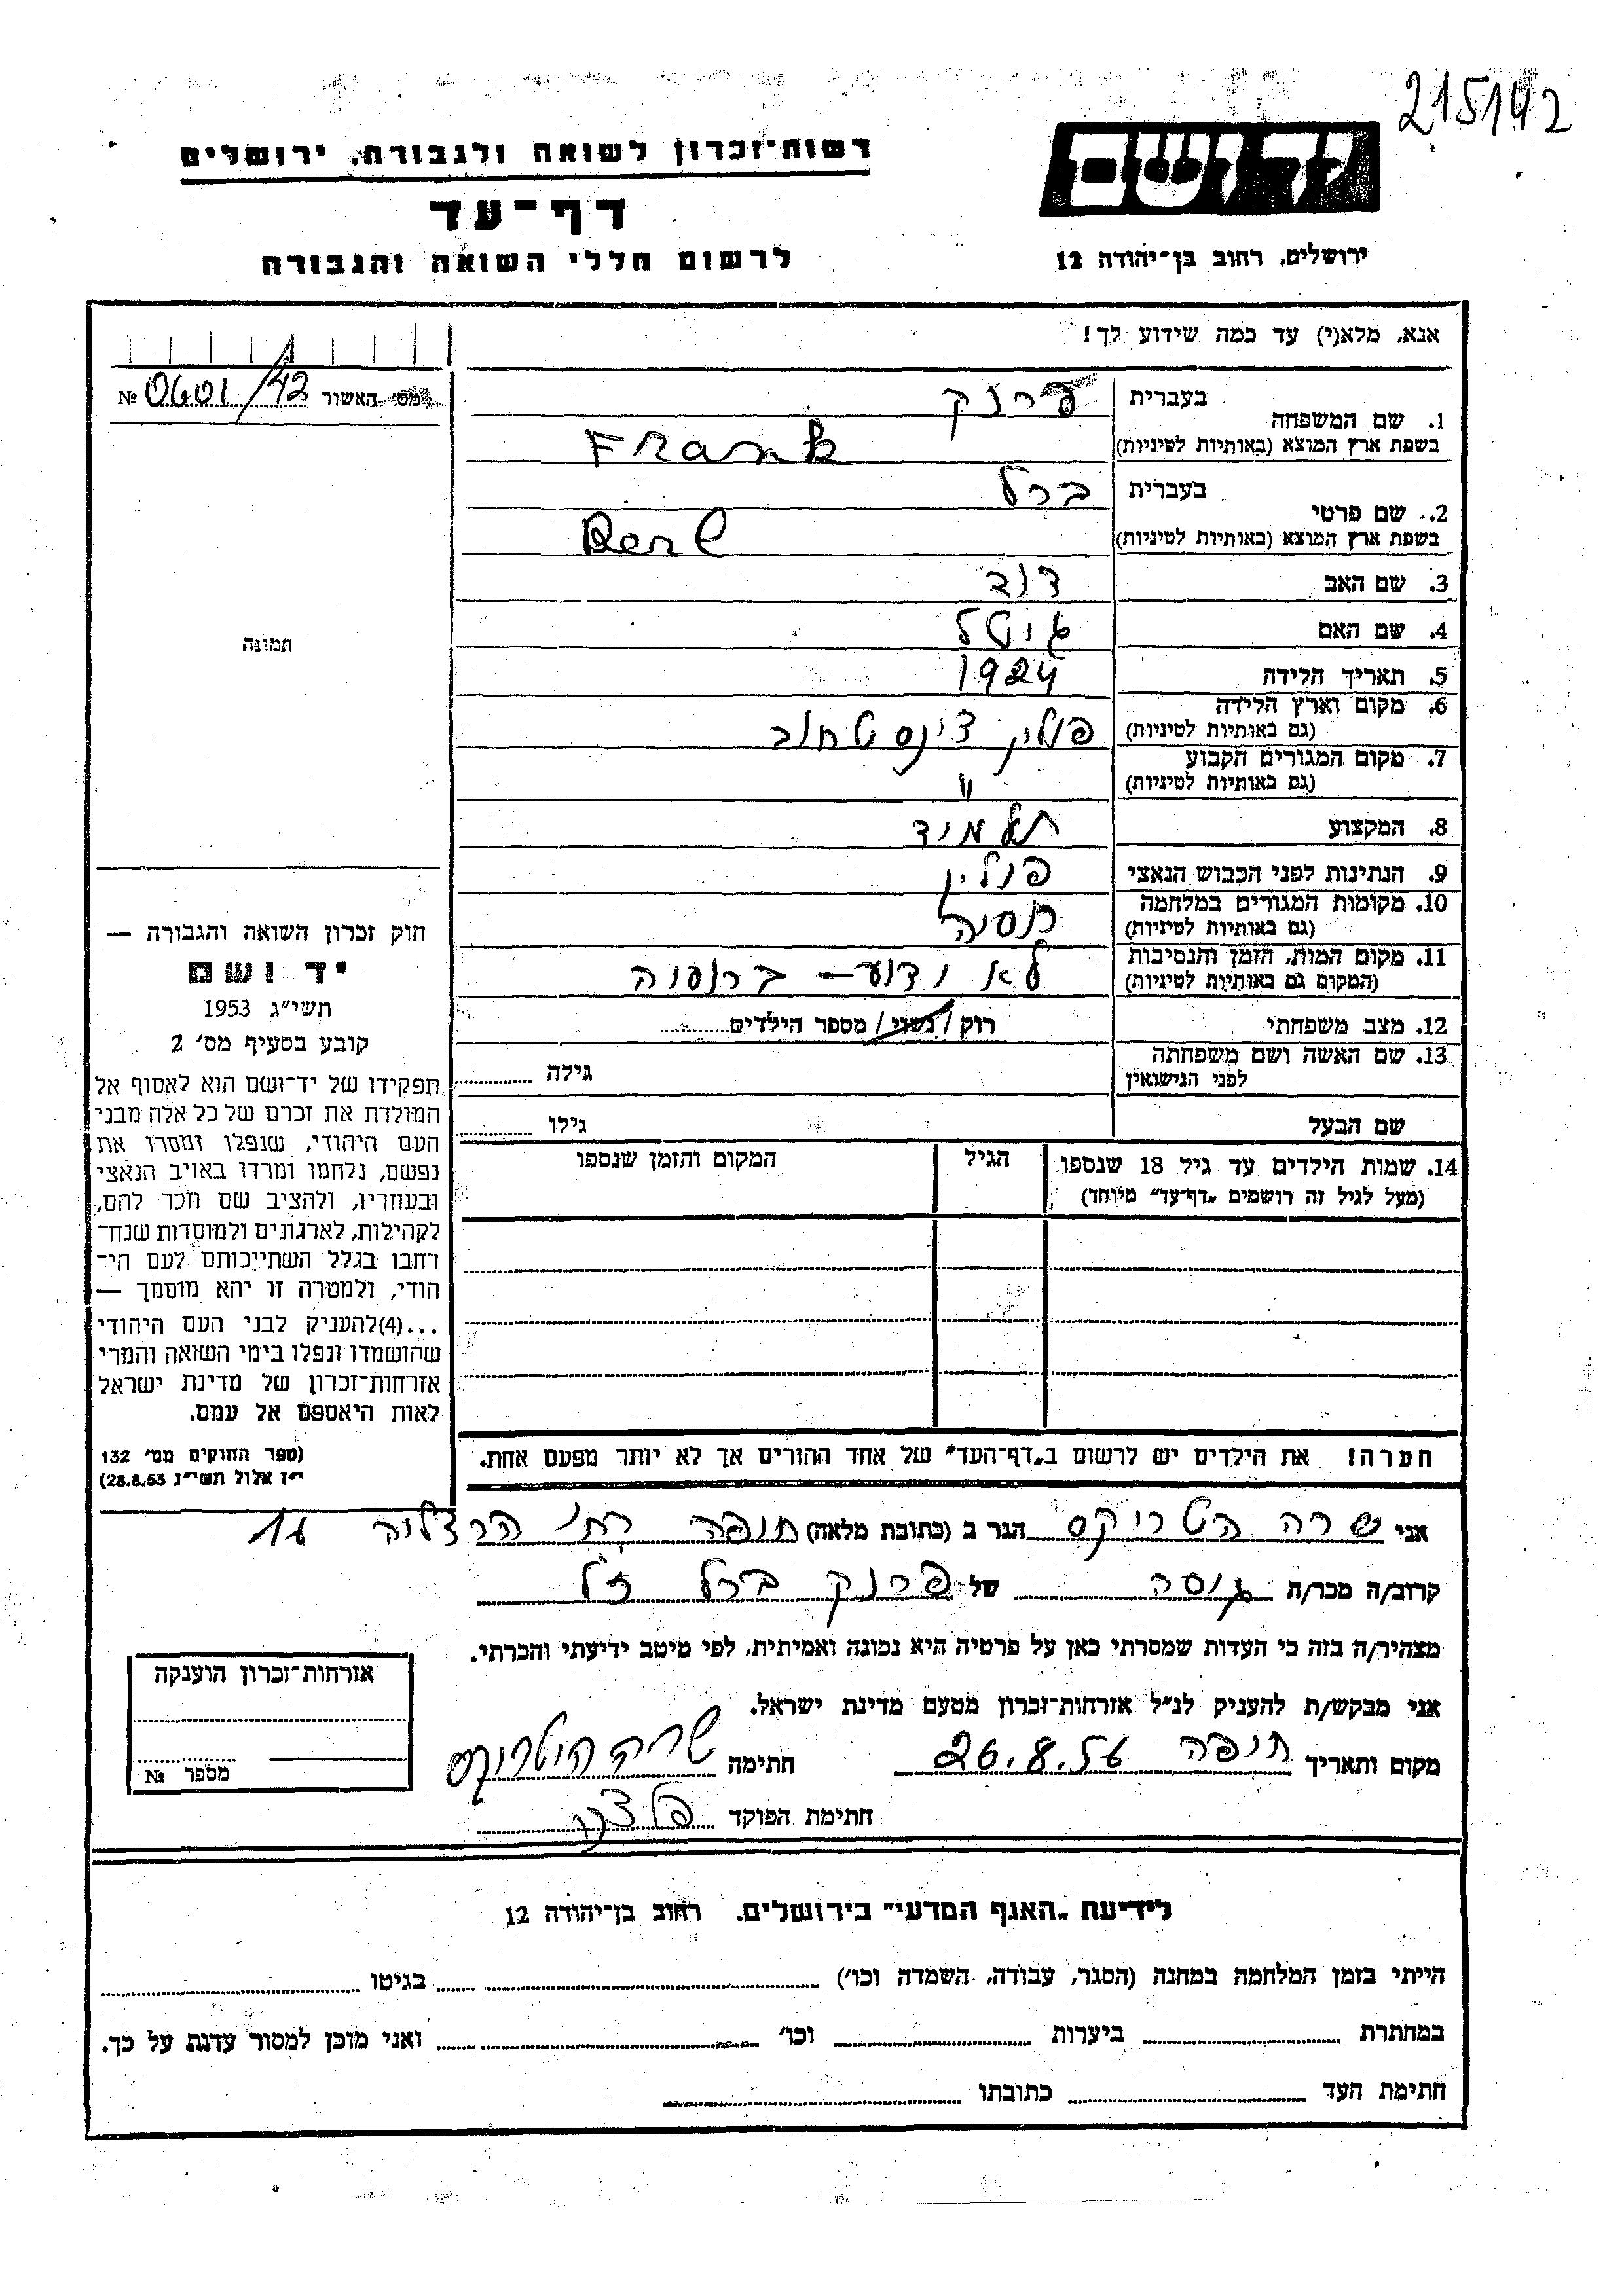 215142
רשות-זכרון לשואה ולגבורה, ירושלים
דף-עד
לרשום חללי השואה והגבורה
ידושם
ירושלים, רחוב בן-יהודה 12
אנא, מלא(י) עד כמה שידוע לך!
מס' האשור № 0601/42
בעברית פרנק
1. שם המשפחה
בשפת ארץ המוצא (באותיות לטיניות) Frank
בעברית ברל
2. שם פרטי
בשפת ארץ המוצא (באותיות לטיניות) Berl
3. שם האב דוד
4. שם האם גיטל
תמונה
5. תאריך הלידה 1924
6. מקום וארץ הלידה
(גם באותיות לטיניות) פולין צ'נסטחוב
7. מקום המגורים הקבוע
(גם באותיות לטיניות) "
8. המקצוע תלמיד
9. הנתינות לפני הכבוש הנאצי פולין
10. מקומות המגורים במלחמה
(גם באותיות לטיניות) רוסיה
11. מקום המות, הזמן והנסיבות
(המקום גם באותיות לטיניות) לא ידוע - ברוסיה
12. מצב משפחתי רוק / נשוי / מספר הילדים
13. שם האשה ושם משפחתה
לפני הנישואין גילה
שם הבעל גילו
14. שמות הילדים עד גיל 18 שנספו הגיל המקום והזמן שנספו
(מעל לגיל זה רושמים "דף-עד" מיוחד)
חוק זכרון השואה והגבורה —
יד ושם
תשי"ג 1953
קובע בסעיף מס' 2
תפקידו של יד-ושם הוא לאסוף אל
המולדת את זכרם של כל אלה מבני
העם היהודי, שנפלו ומסרו את
נפשם, נלחמו ומרדו באויב הנאצי
ובעוזריו, ולהציב שם וזכר להם,
לקהילות, לארגונים ולמוסדות שנח-
רחבו בגלל השתייכותם לעם הי-
הודי, ולמטרה זו יהא מוסמך —
...(4)להעניק לבני העם היהודי
שהושמדו ונפלו בימי השואה והמרי
אזרחות-זכרון של מדינת ישראל
לאות היאספם אל עמם.
(ספר החוקים מס' 132
י"ז אלול תשי"ג 28.8.53)
הערה! את הילדים יש לרשום ב"דף-העד" של אחד ההורים אך לא יותר מפעם אחת.
אני שרה הגר ב (כתובת מלאה) חיפה רח' הרצליה 11
קרוב/ה מכר/ה גיסה של פרנק ברל ז"ל
מצהיר/ה בזה כי העדות שמסרתי כאן על פרטיה היא נכונה ואמיתית, לפי מיטב ידיעתי והכרתי.
אני מבקש/ת להעניק לנ"ל אזרחות-זכרון מטעם מדינת ישראל.
מקום ותאריך חיפה 26.8.56 חתימה שרה
חתימת הפוקד
אזרחות-זכרון הוענקה
מספר №
לידיעת "האגף המדעי" בירושלים, רחוב בן-יהודה 12
הייתי בזמן המלחמה במחנה (הסגר, עבודה, השמדה וכו') בגיטו
במחתרת ביערות וכו' ואני מוכן למסור עדות על כך.
חתימת העד כתובתו